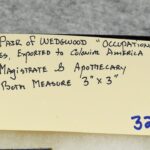 PAIR OF WEDGWOOD "OCCUPATION
ES, EXPORTED TO COLONIAL AMERICA
MAGISTRATE & APOTHECARY
BOTH MEASURE 3" X 3"
32